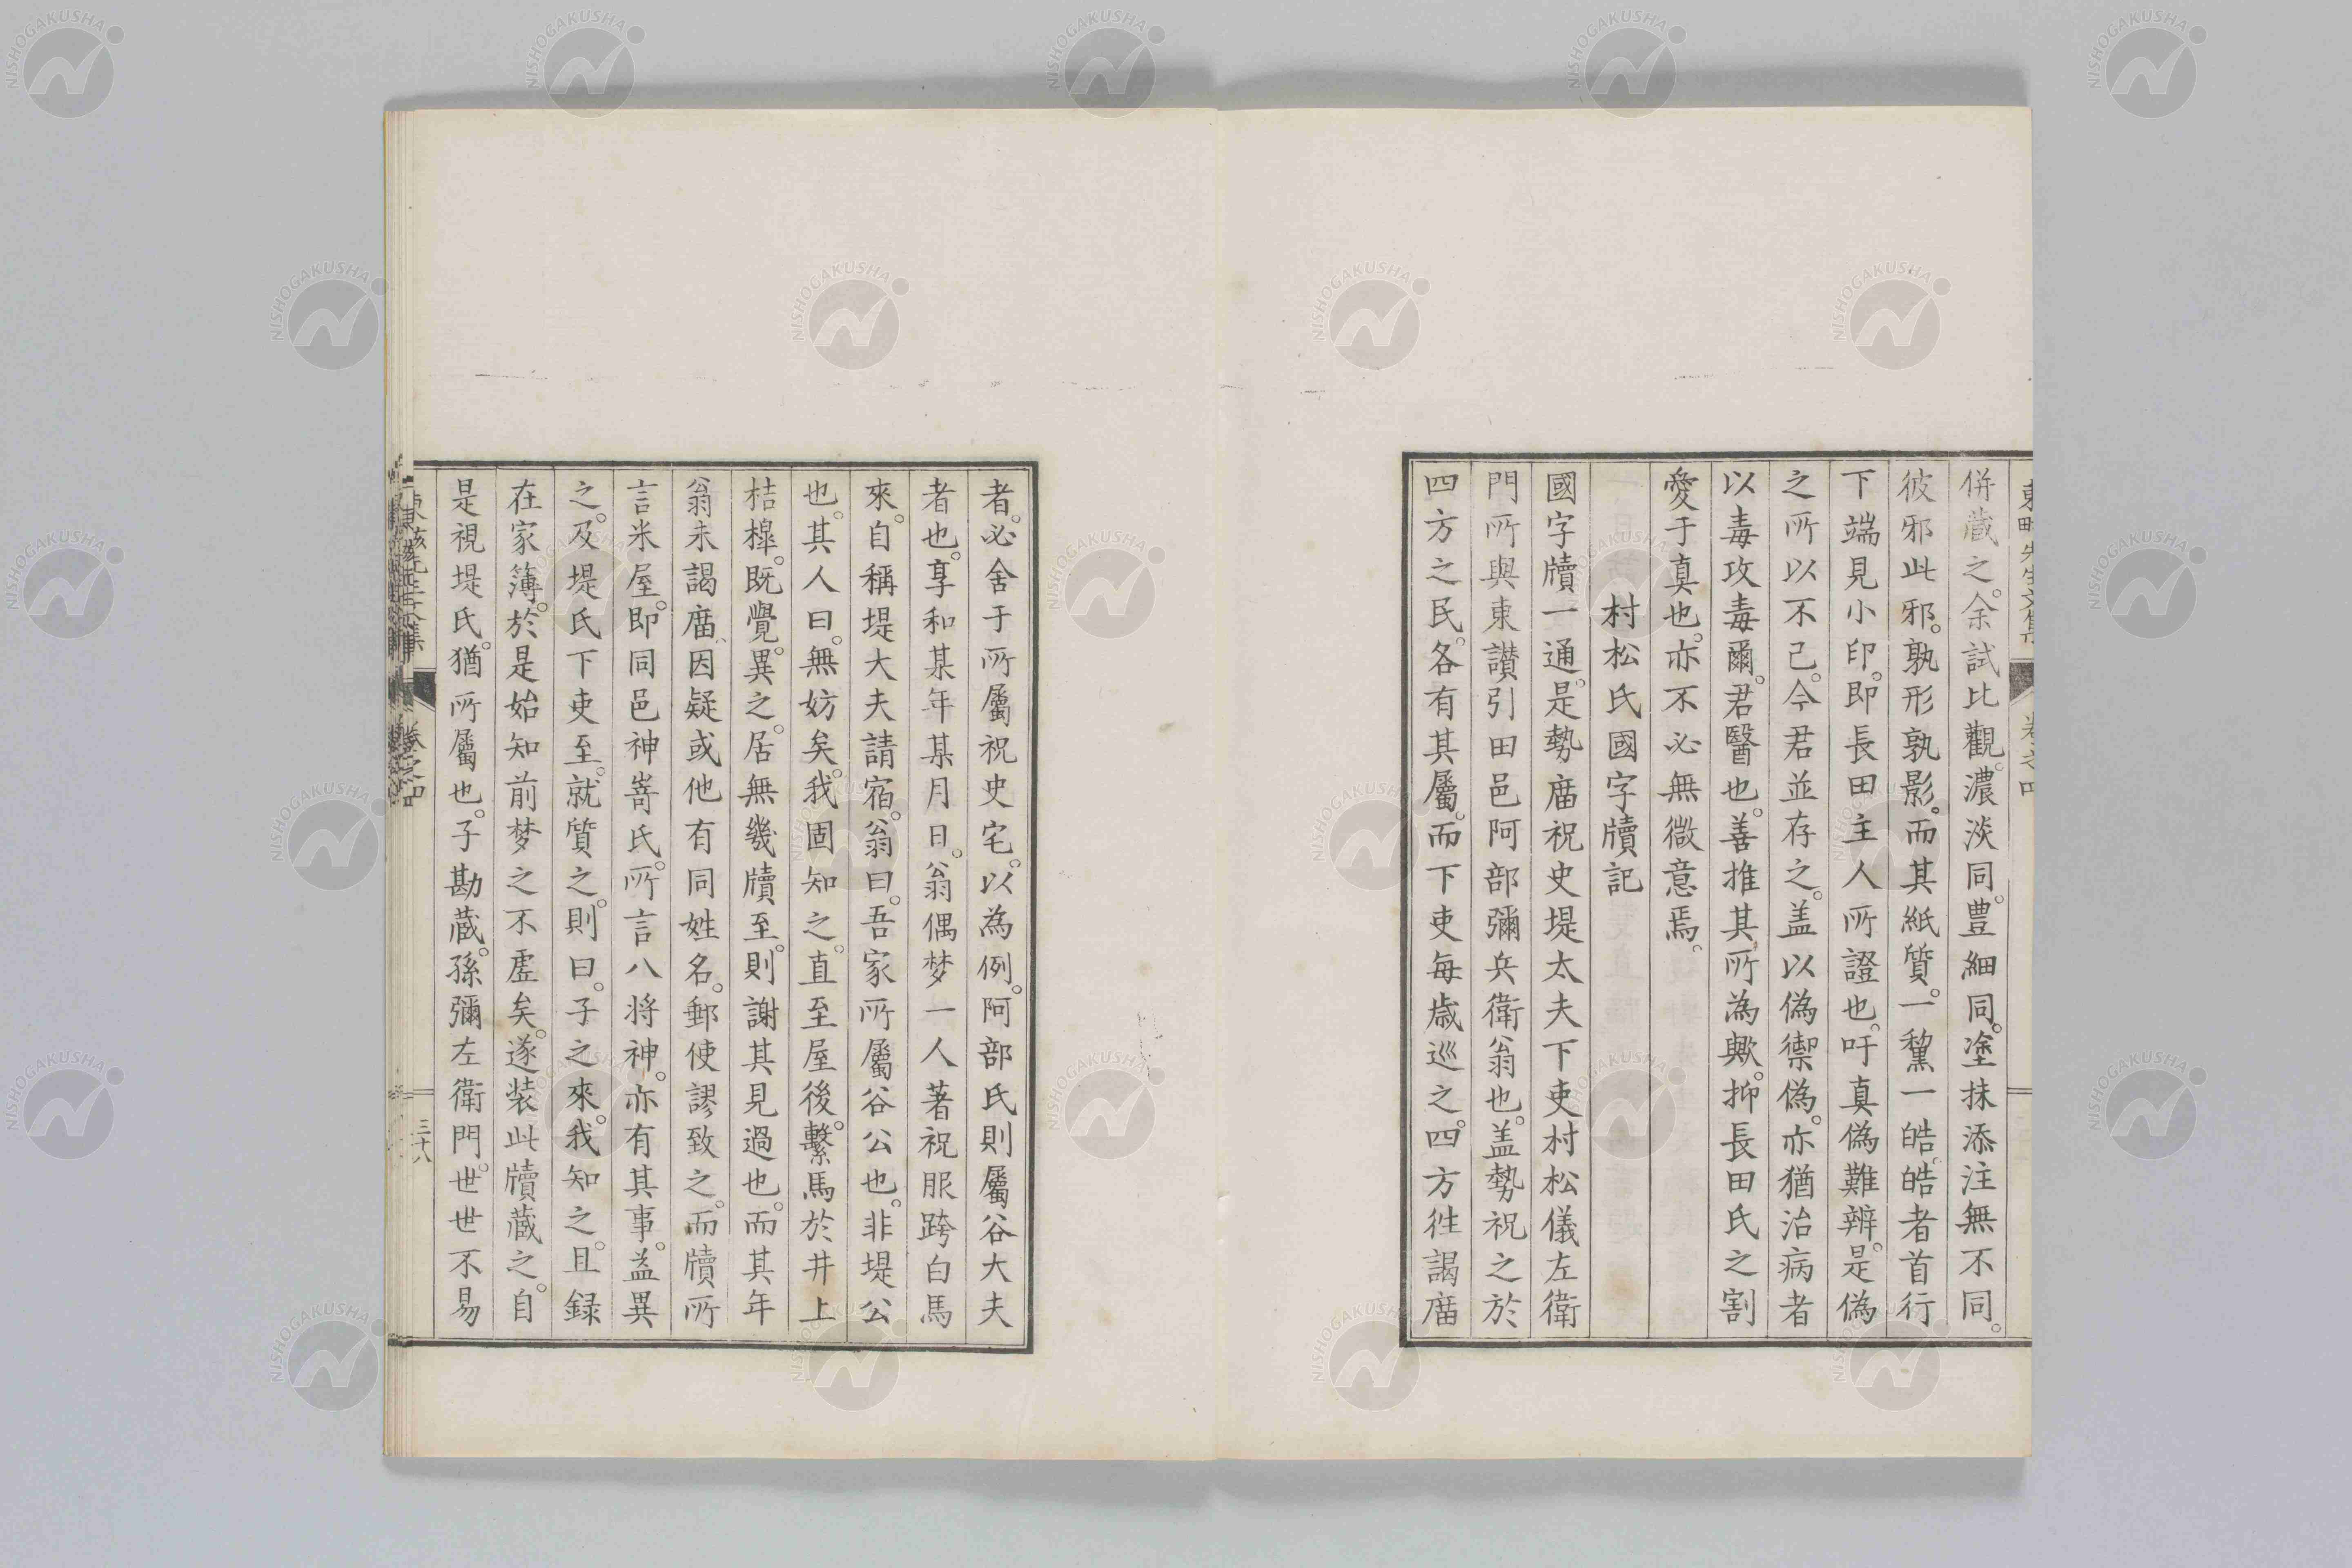 併蔵之。余試比觀。濃淡同。豊細同。塗抹添注無不同。
彼邪此邪。孰形孰影。而其紙質。一黧一皓。皓者首行
下端見小印。即長田主人所證也。吁真偽難辨。是偽
之所以不已。今君並存之。盖以偽禦偽。亦猶治病者
以毒攻毒爾。君醫也。善推其所為歟。抑長田氏之割
愛于真也。亦不必無微意焉。
村松氏國字牘記
國字牘一通。是勢廟祝史堤太夫下吏村松儀左衛
門所與東讃引田邑阿部彌兵衛翁也。盖勢祝之於
四方之民。各有其屬。而下吏每歳巡之。四方徃謁廟
者。必舍于所屬祝史宅。以為例。阿部氏則屬谷大夫
者也。享和某年某月日。翁偶梦一人著祝服跨白馬
來。自稱堤大夫請宿。翁曰。吾家所屬谷公也。非堤公
也。其人曰。無妨矣。我固知之。直至屋後。繫馬於井上
桔槹。既覺。異之。居無幾牘至。則謝其見過也。而其年
翁未謁廟、因疑或他有同姓名。郵使謬致之。而牘所
言米屋。即同邑神嵜氏。所言八将神。亦有其事。益異
之。及堤氏下吏至。就質之。則曰。子之來。我知之。且録
在家簿。於是始知前梦之不虚矣。遂装此牘藏之。自
是視堤氏。猶所屬也。子勘蔵。孫彌左衛門。世世不易
卷之四
三十八
NISHOGAKUSHA